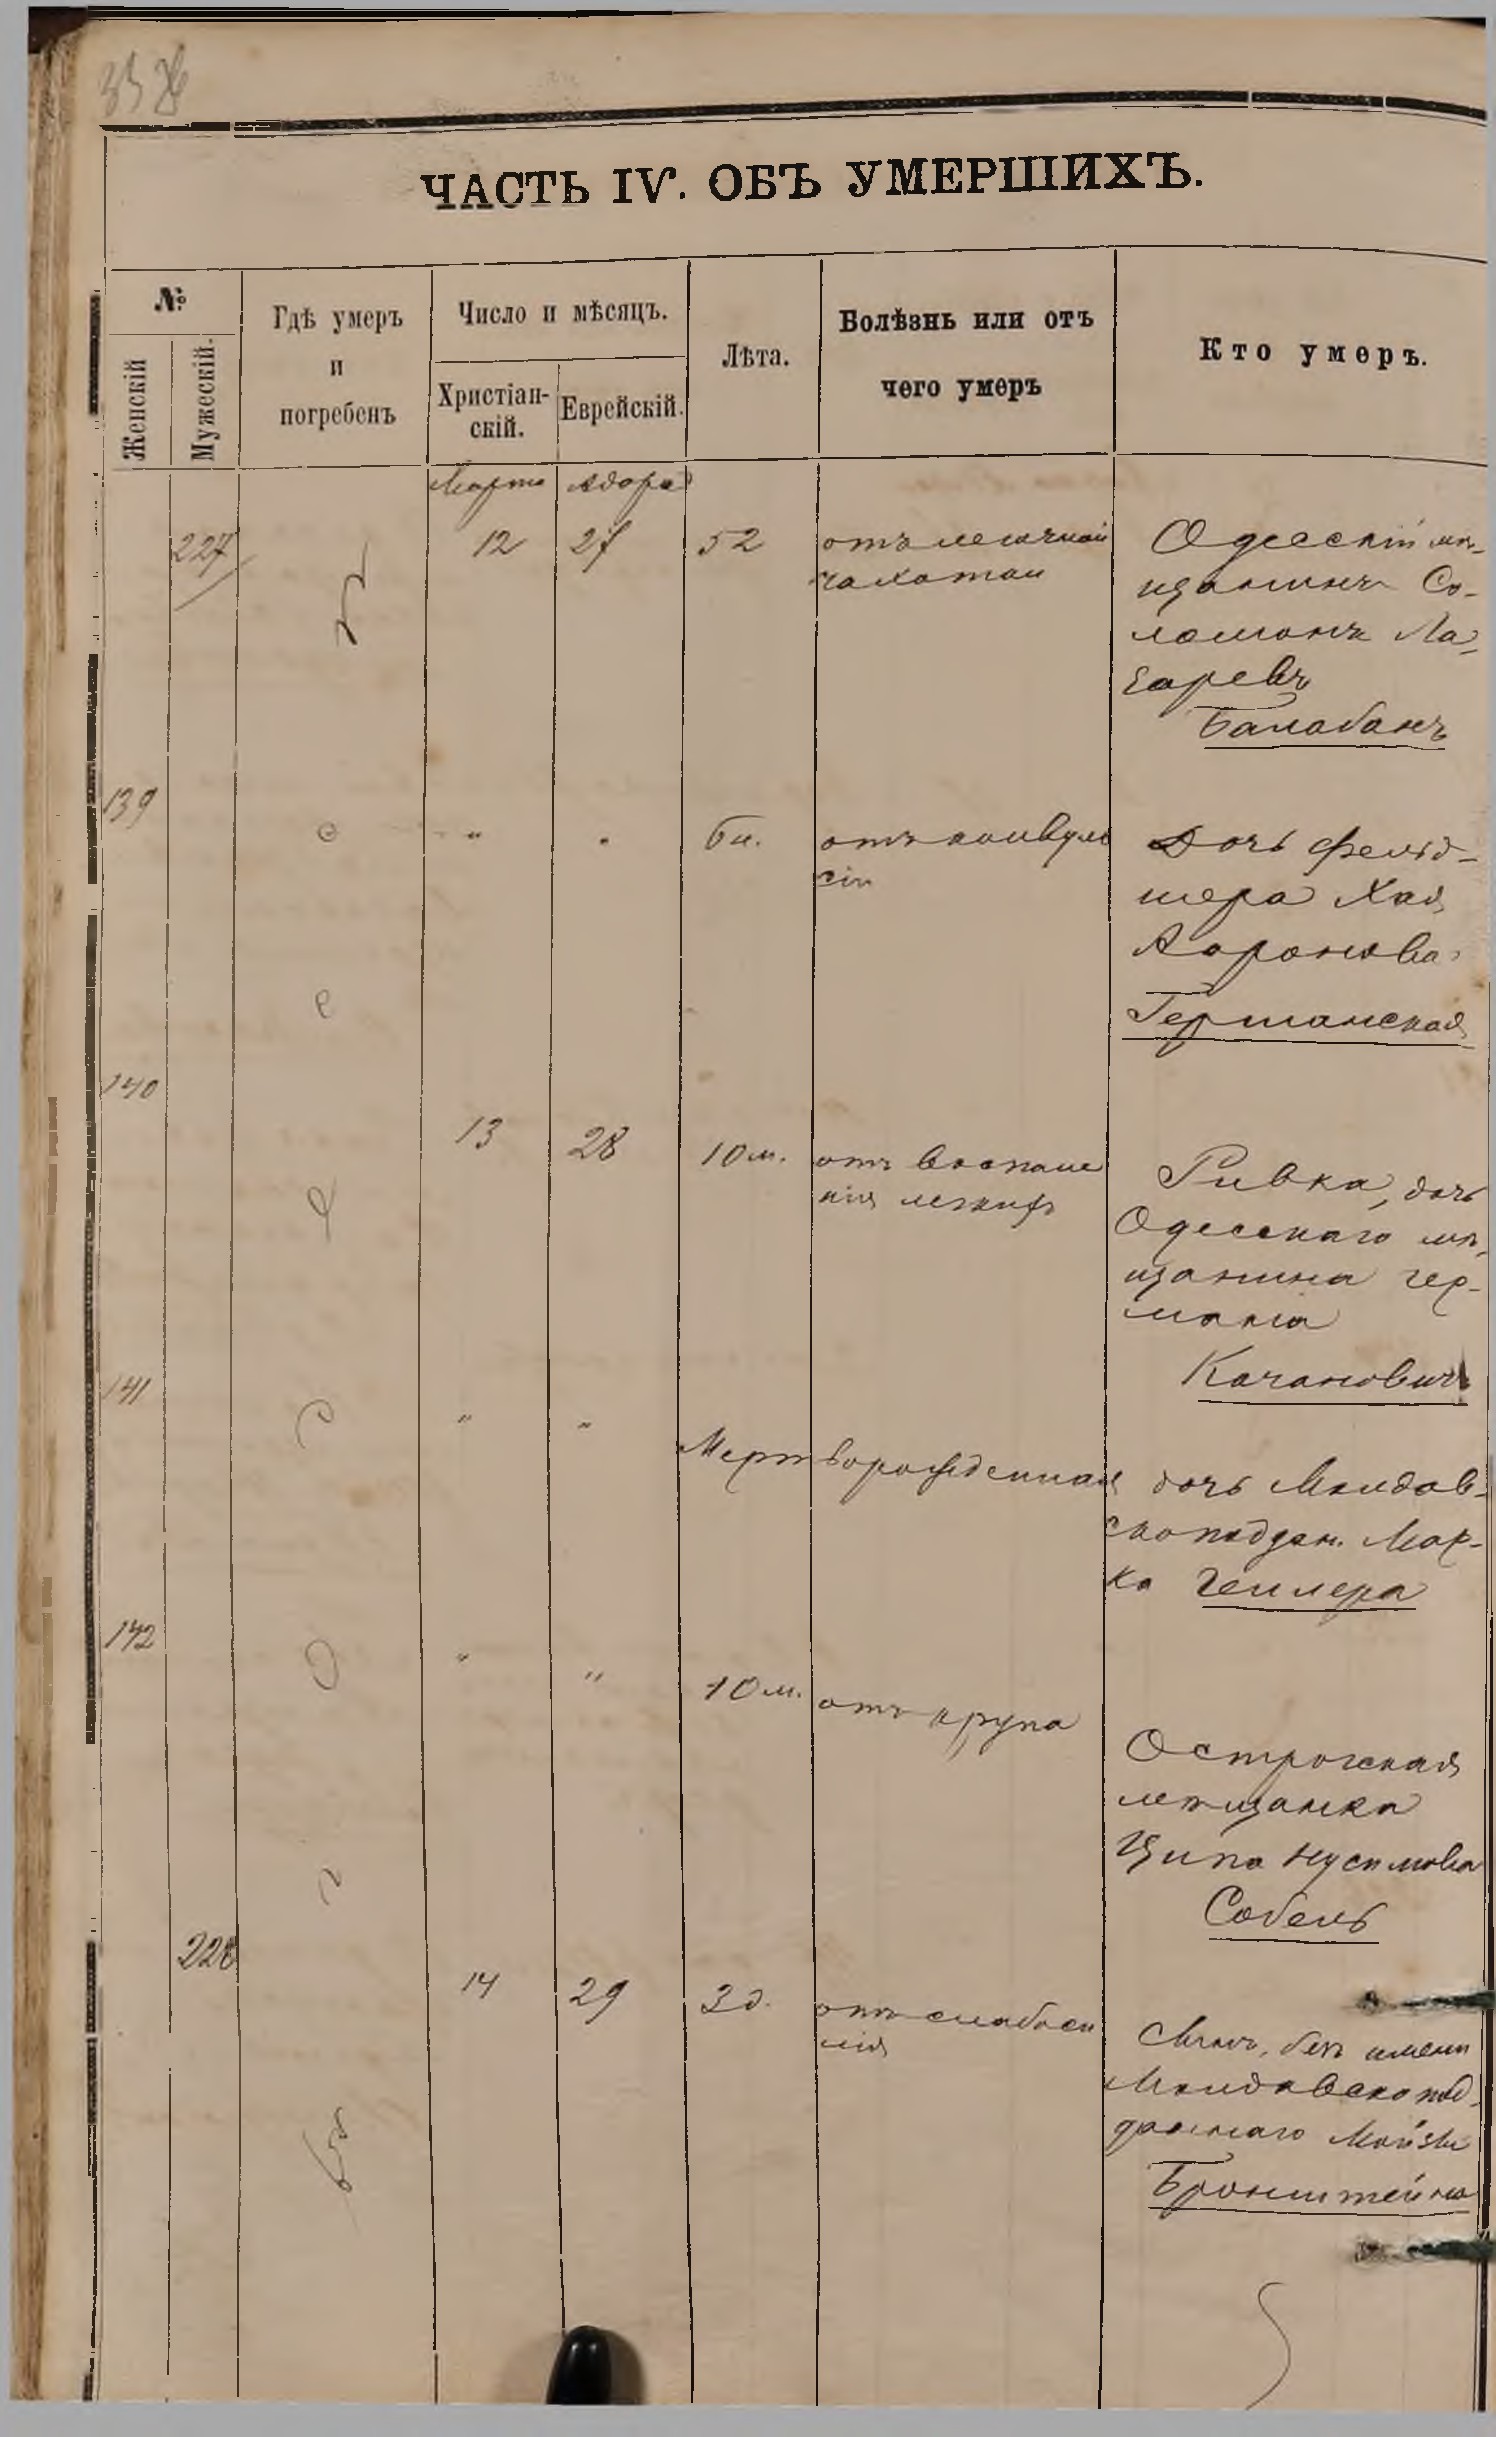 ЧАСТЬ IV. ОБЪ УМЕРШИХЪ.
№
Женскій
Мужескій.
Гдѣ умеръ
и
погребенъ
Число и мѣсяцъ.
Христіан-
скій.
Еврейскій.
Лѣта.
Болѣзнь или отъ
чего умеръ
Кто умеръ.
Марта Адара
227
12 27 52
отъ легочной
чахотки
Одесскій мѣ-
щанинъ Со-
ломонъ Ла-
заревъ
Балабанъ
139
" " 6 н.
отъ конвуль
сіи
Дочь фельд-
шера Хая
Ааронова
Германская
140
13 28 10 м.
отъ воспале
нія легкихъ
Ривка, дочь
Одесскаго мѣ-
щанина Гер-
мана
Качановичъ
141
" " Мертворожденная дочь Молдав-
скоподдан. Мар-
ка Геллера
142
" " 10 м. отъ крупа
Острожская
мѣщанка
Ципа Нусимова
Собель
228
14 29 3 д.
отъ слабоси
лія
Младен. безъ имени
Молдавскопод-
даннаго Мойзы
Бронштейна